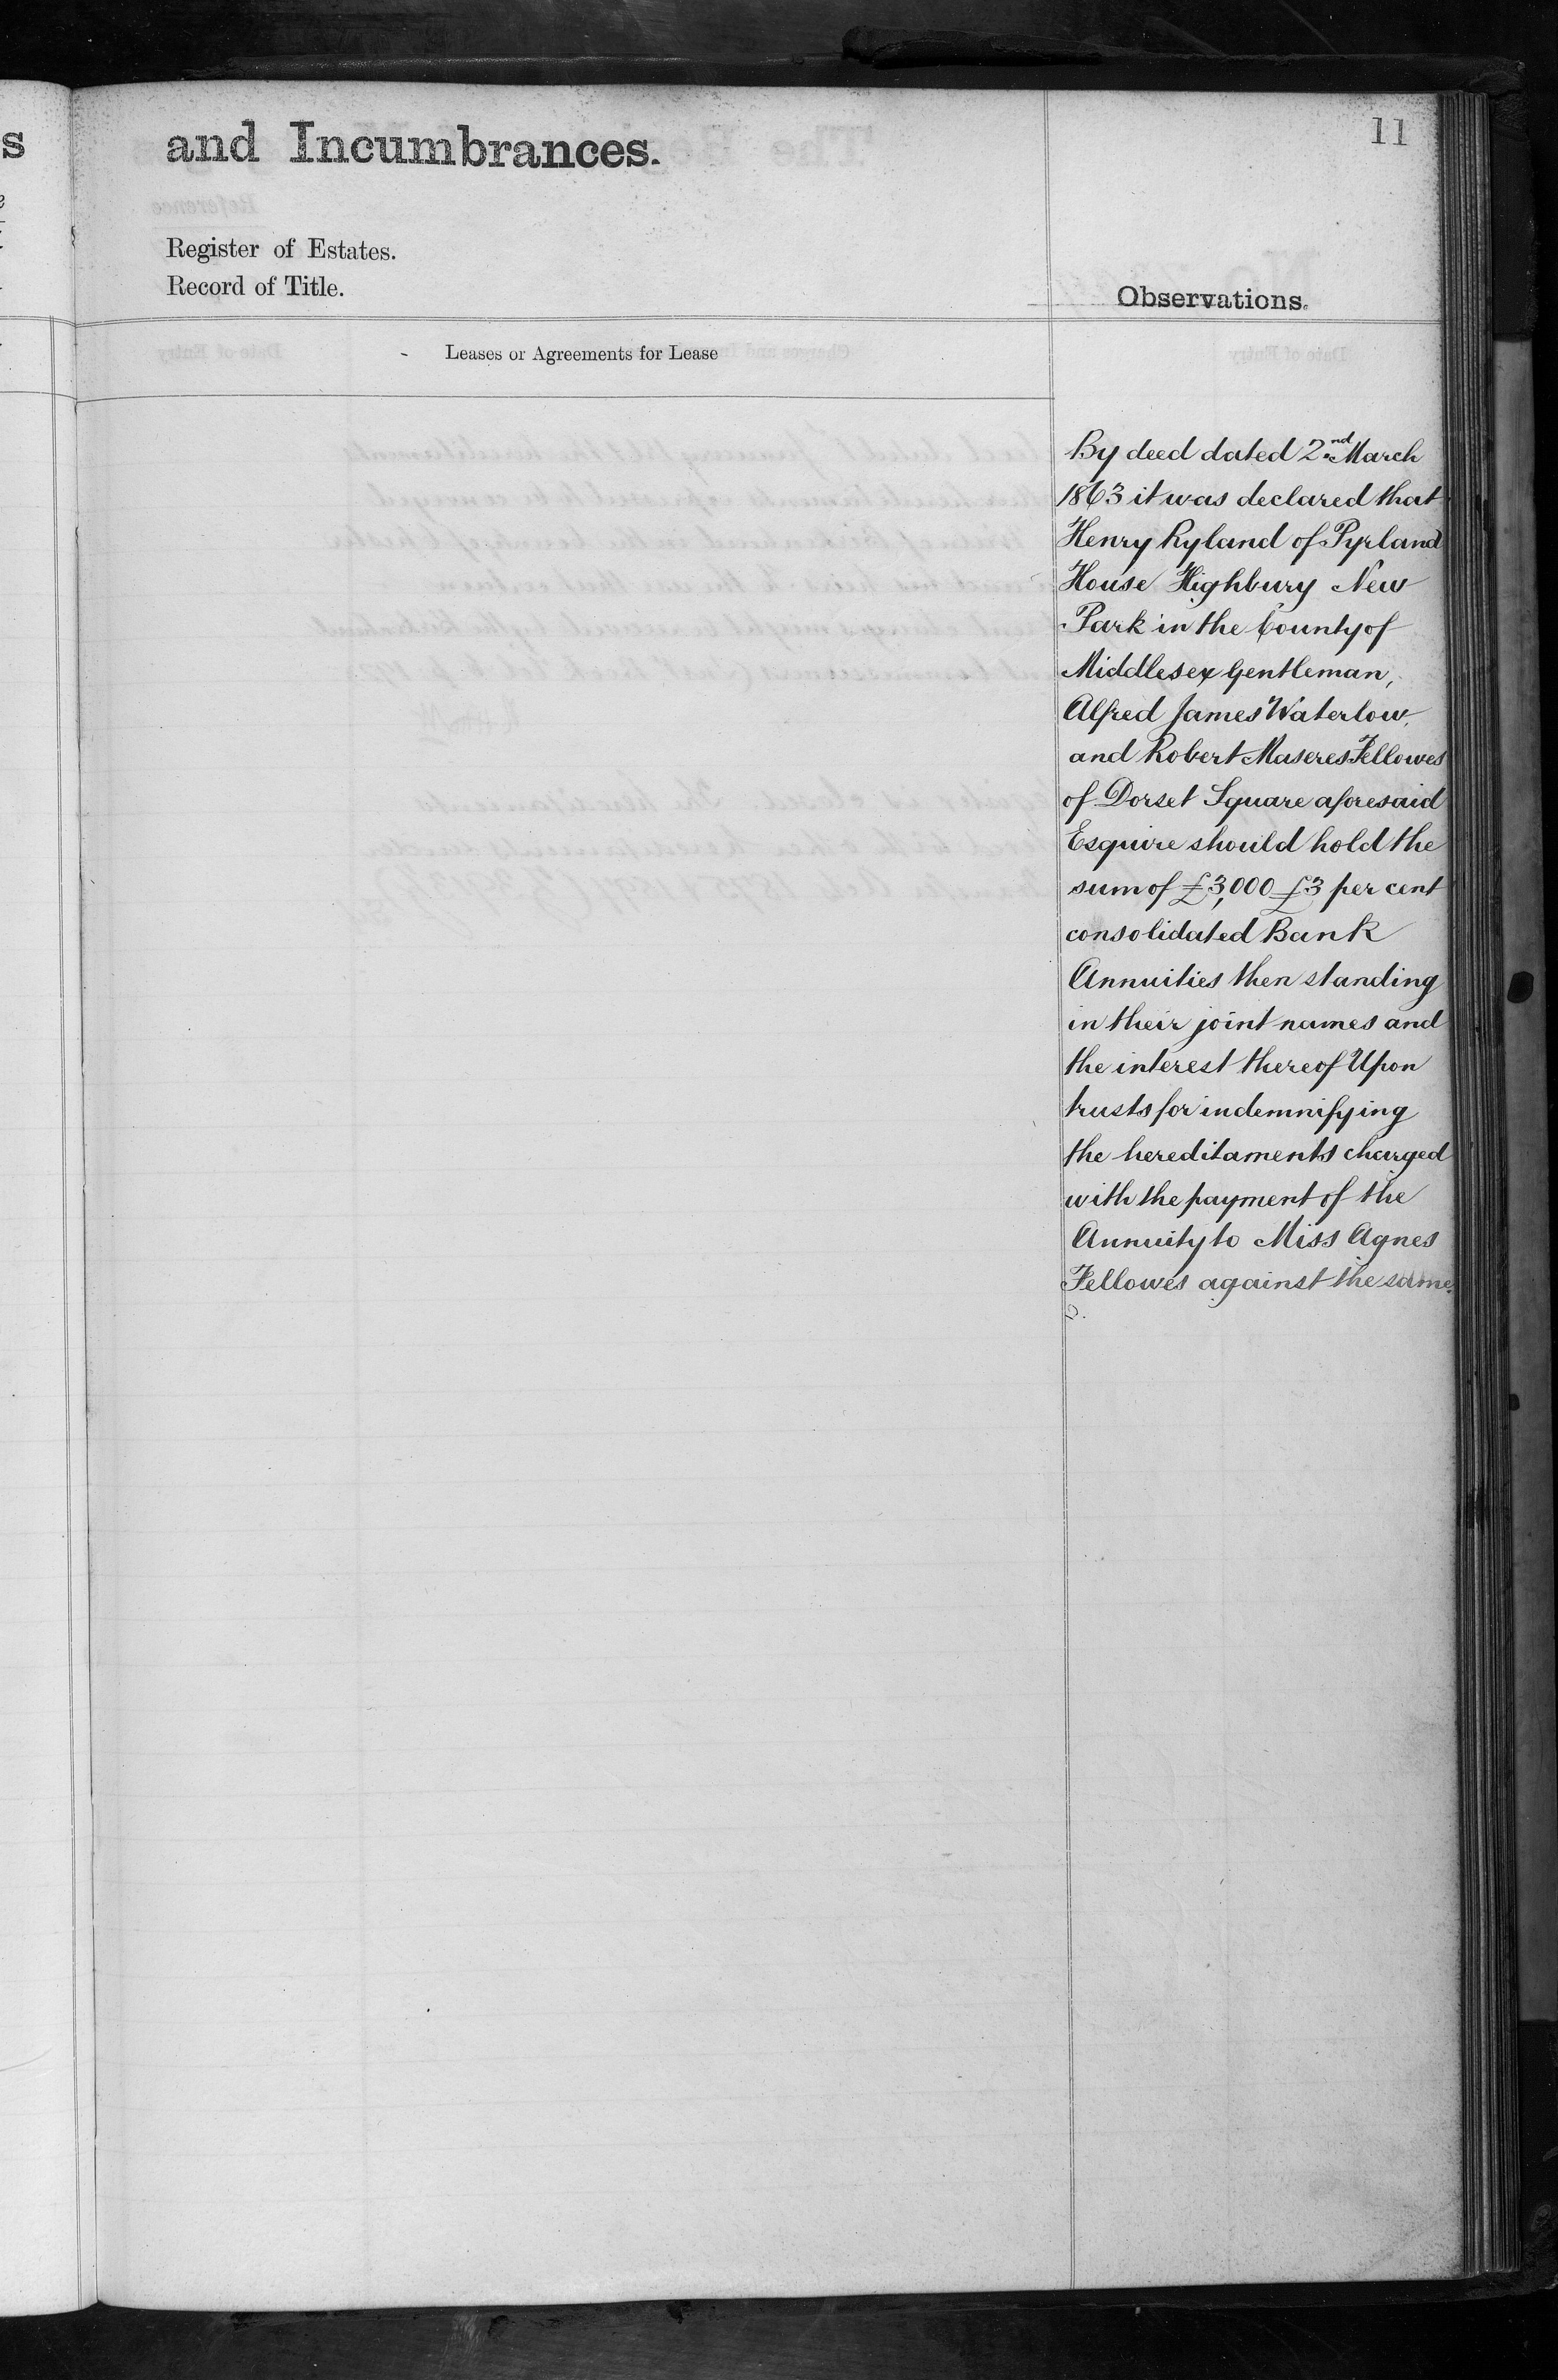 11
and Incumbrances.
Register of Estates.
Record of Title.
Observations.
Leases or Agreements for Lease
By deed dated 2nd March
1863 it was declared that
Henry Ryland of Pyrland
House Highbury New
Park in the County of
Middlesex Gentleman,
Alfred James Waterlow
and Robert Maseres Fellowes
of Dorset Square aforesaid
Esquire should hold the
sum of £3,000 £3 per cent
consolidated Bank
Annuities then standing
in their joint names and
the interest thereof Upon
trusts for indemnifying
the hereditaments charged
with the payment of the
Annuity to Miss Agnes
Fellowes against the same.